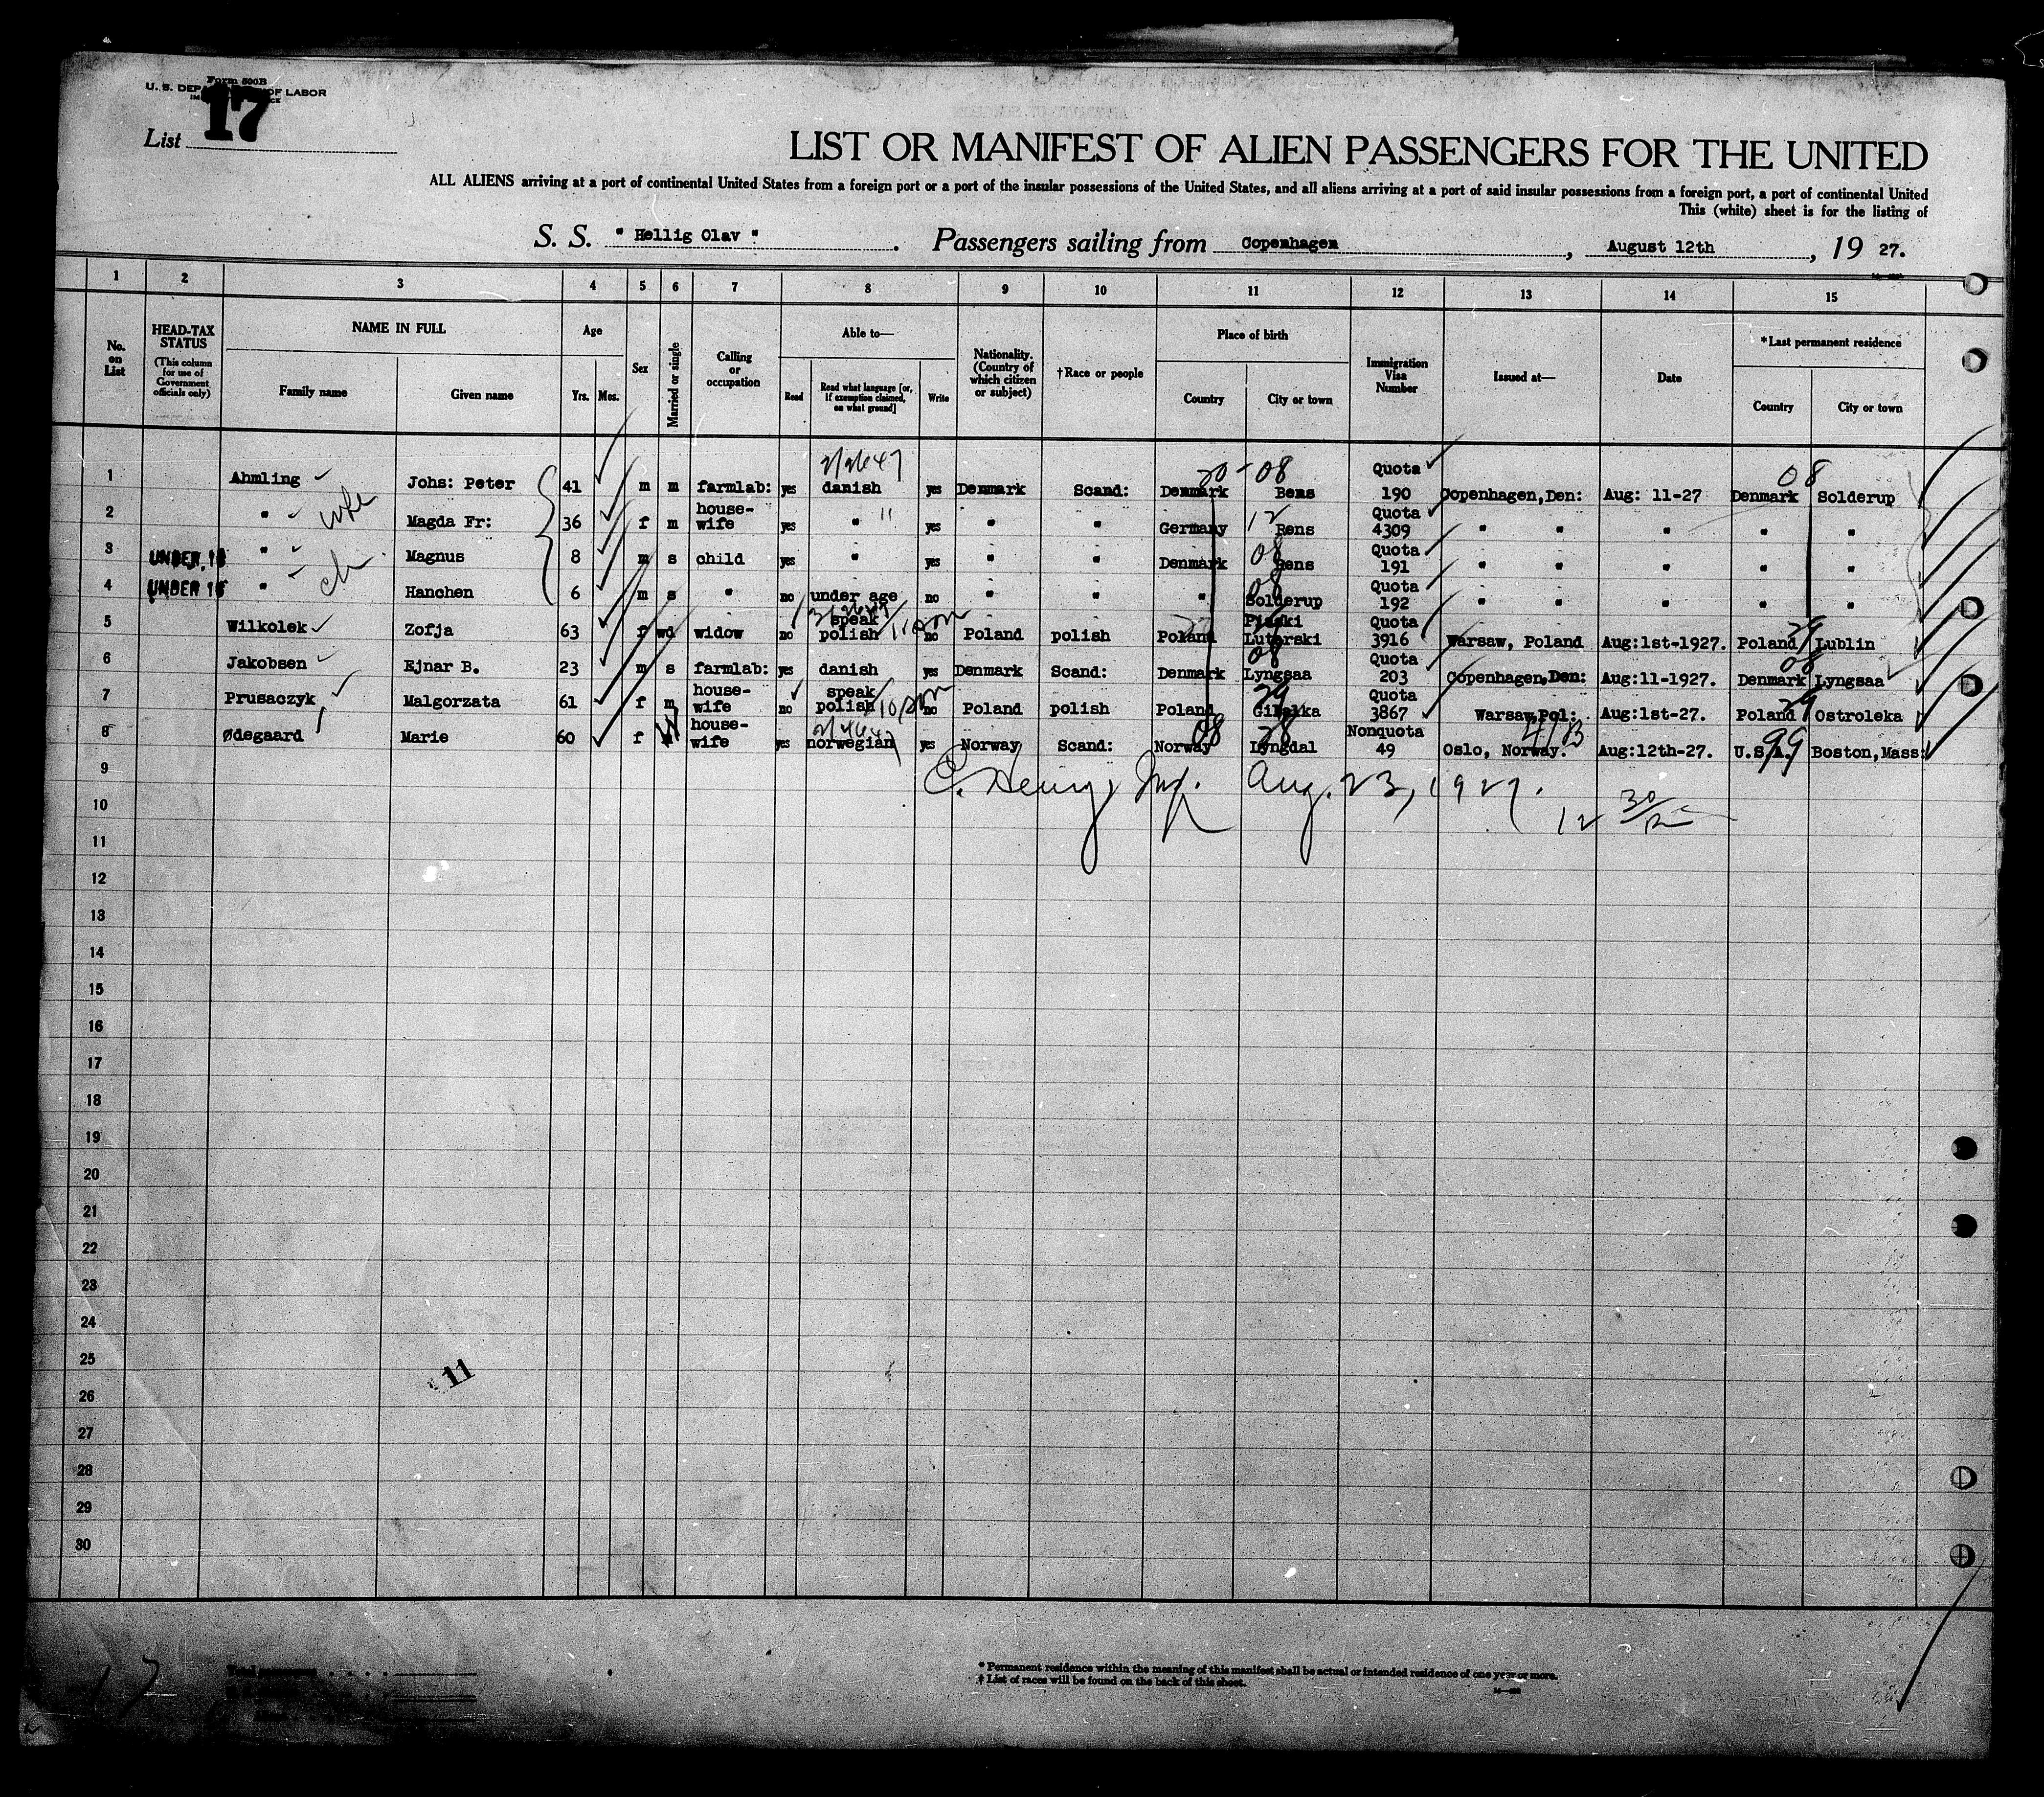 Form 500B
U. S. DEPA OF LABOR
List 17
LIST OR MANIFEST OF ALIEN PASSENGERS FOR THE UNITED
ALL ALIENS arriving at a port of continental United States from a foreign port or a port of the insular possessions of the United States, and all aliens arriving at a port of said insular possessions from a foreign port, a port of continental United
This (white) sheet is for the listing of
S. S. "Hellig Olav". Passengers sailing from Copenhagen, August 12th, 19 27.
1 2 3 4 5 6 7 8 9 10 11 12 13 14 15
No. on List
HEAD-TAX STATUS (This column for use of Government officials only)
NAME IN FULL
Family name Given name
Age
Yrs. Mos.
Sex
Married or single
Calling or occupation
Able to—
Read Read what language [or, if exemption claimed, on what ground] Write
Nationality. (Country of which citizen or subject)
†Race or people
Place of birth
Country City or town
Immigration Visa Number
Issued at—
Date
*Last permanent residence
Country City or town
1 Ahmling Johs: Peter 41 m m farmlab: yes danish yes Denmark Scand: Denmark Bens Quota 190 Copenhagen, Den: Aug: 11-27 Denmark Solderup
20-08 08
2 " wife Magda Fr: 36 f m house-wife yes " 11 yes " " Germany 12 Rens Quota 4309 " " " " "
3 UNDER 16 " Magnus 8 m s child yes " yes " " Denmark 08 Rens Quota 191 " " " " "
4 UNDER 16 " ch Hanchen 6 m s " no under age no " " " 08 Solderup Quota 192 " " " " "
5 Wilkolek Zofja 63 f wd widow no speak polish no Poland polish Poland Lutorski Quota 3916 Warsaw, Poland Aug:1st-1927. Poland 29 Lublin
6 Jakobsen Ejnar B. 23 m s farmlab: yes danish yes Denmark Scand: Denmark 08 Lyngsaa Quota 203 Copenhagen, Den: Aug:11-1927. Denmark 08 Lyngsaa
7 Prusaczyk Malgorzata 61 f m house-wife no speak polish no Poland polish Poland 29 Quota 3867 Warsaw, Pol: Aug:1st-27. Poland 29 Ostroleka
8 Ødegaard Marie 60 f house-wife yes norwegian yes Norway Scand: Norway 08 28 Lyngdal Nonquota 49 Oslo, Norway. 41B Aug:12th-27. U.S.A. 99 Boston, Mass:
9
C. Henry, Aug. 23, 1927.
10
12 30
11
12
13
14
15
16
17
18
19
20
21
22
23
24
25
11
26
27
28
29
30
17
* Permanent residence within the meaning of this manifest shall be actual or intended residence of one year or more.
† List of races will be found on the back of this sheet.